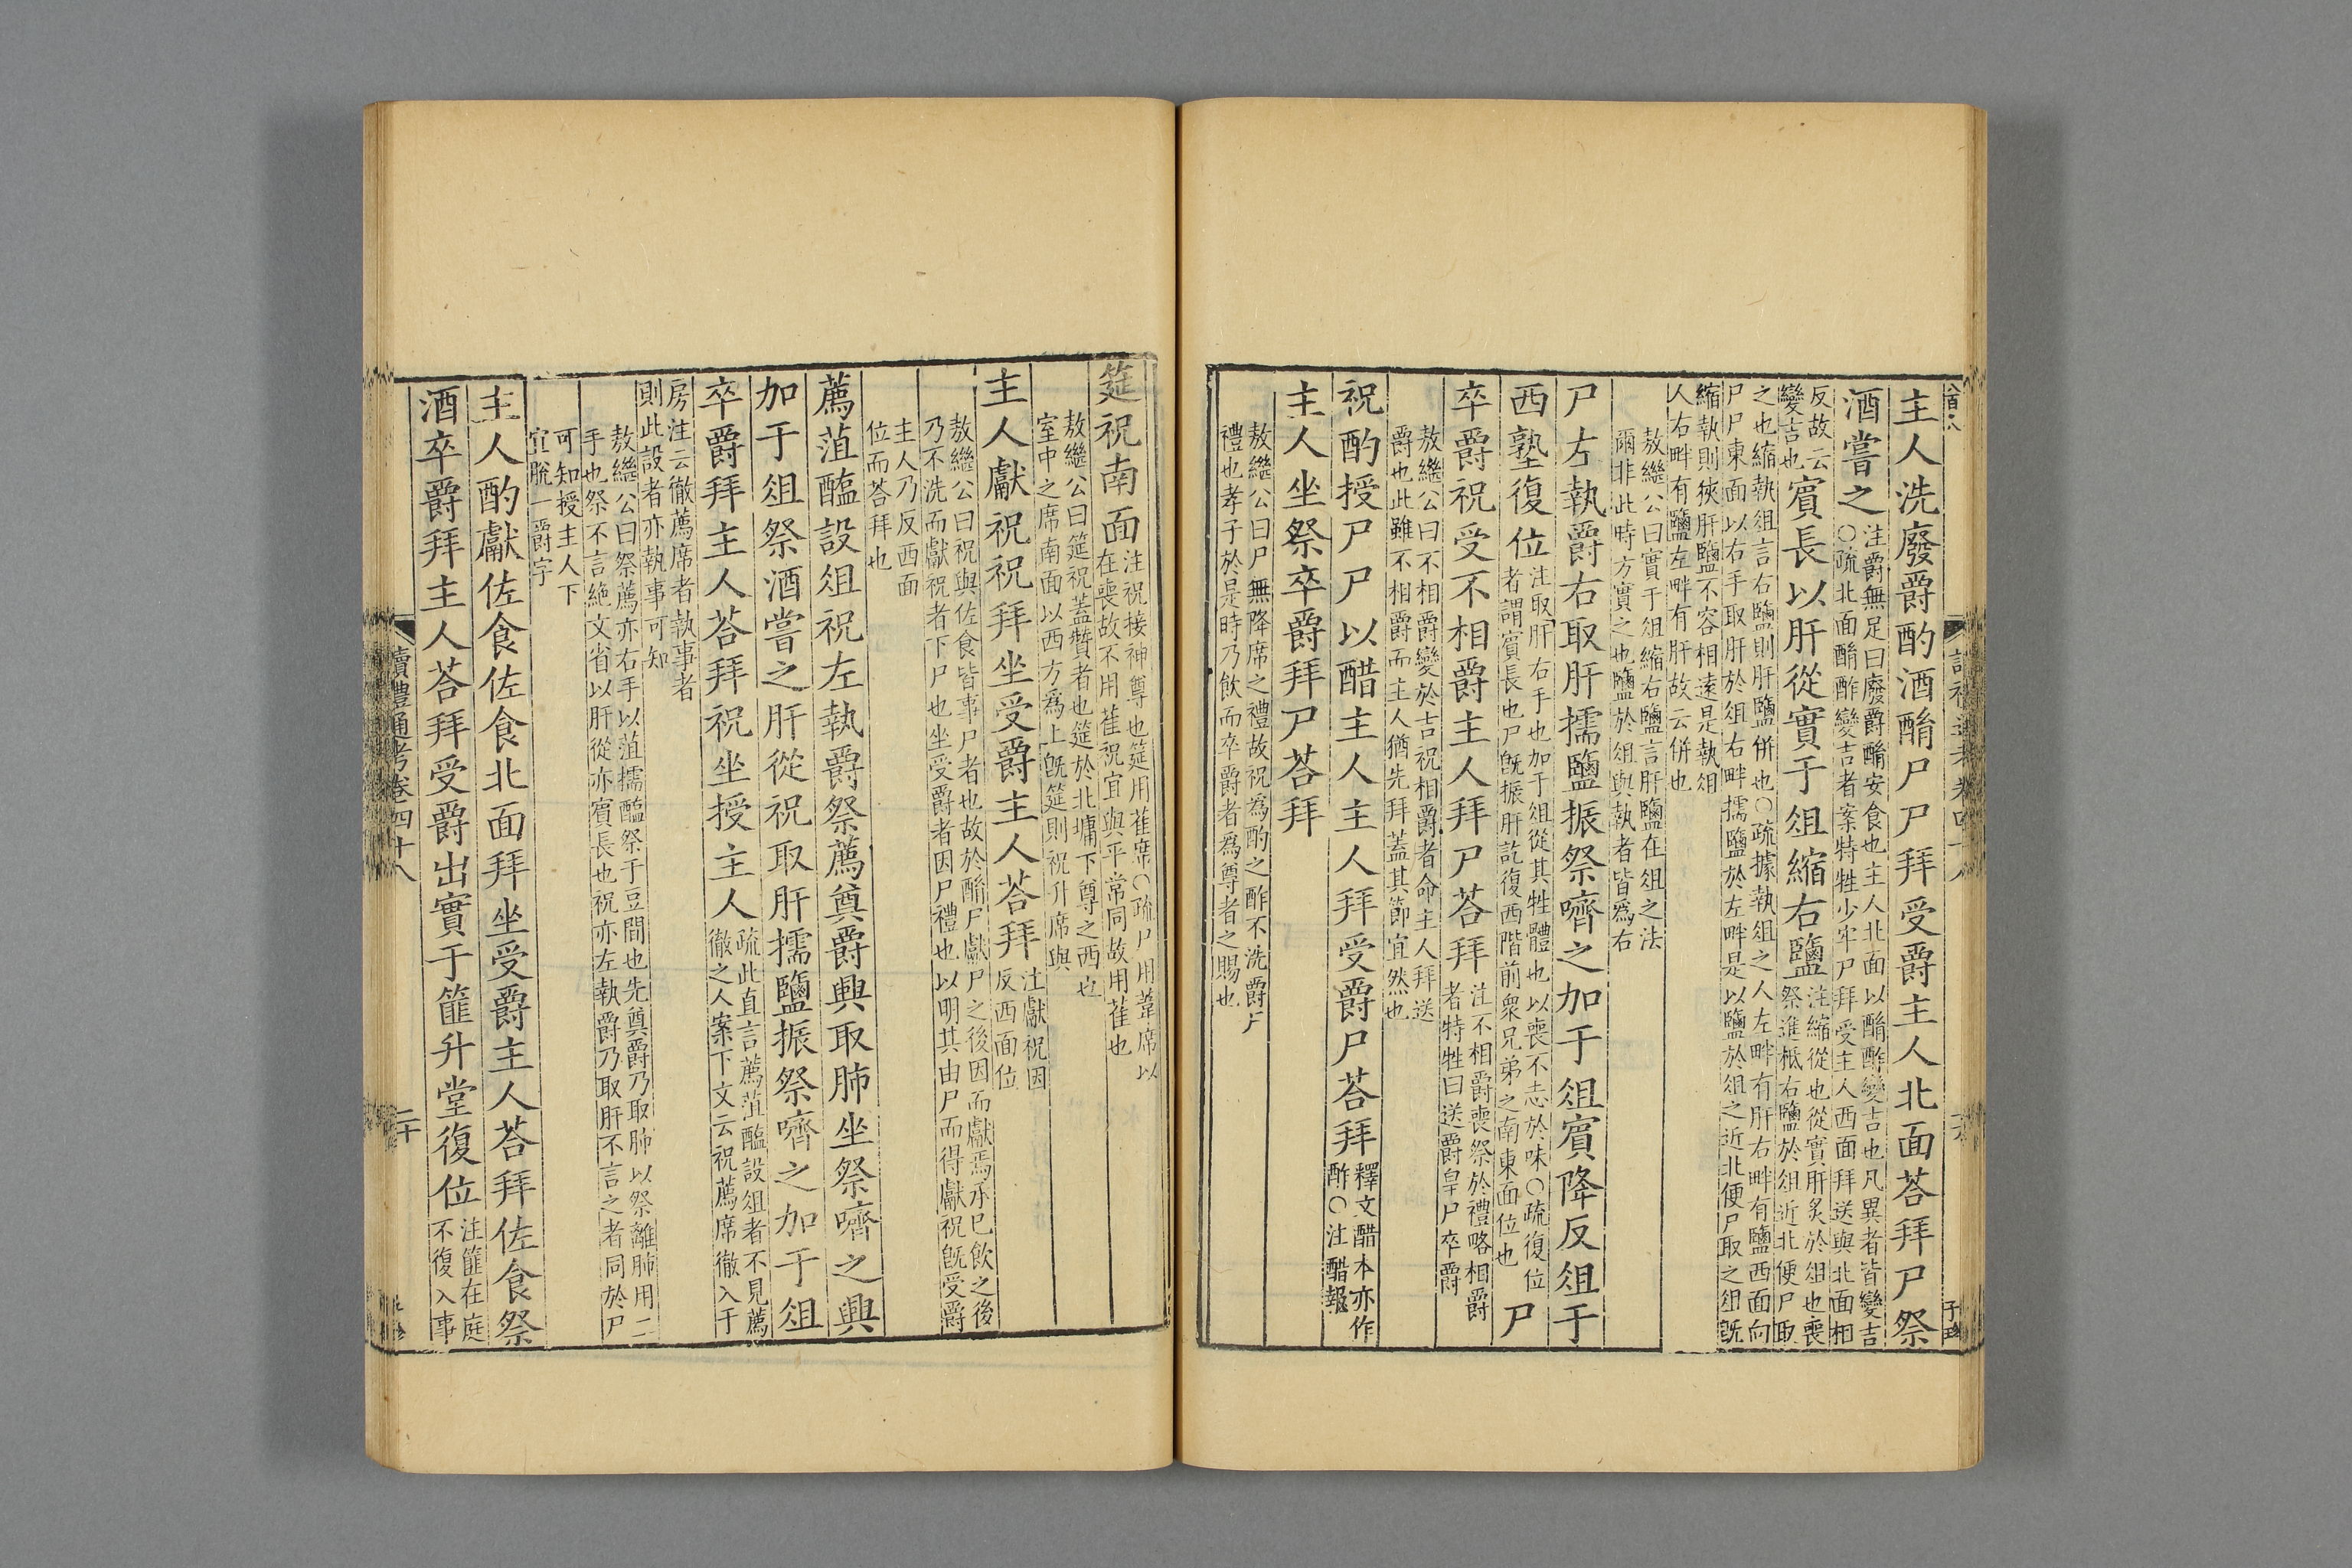 主人洗廢爵酌酒酳尸尸拜受爵主人北面荅拜尸祭
酒嘗之
注爵無足曰廢爵酳安食也主人北面以酳酢變吉也凡異者皆變吉
○疏北面酳酢變吉者案特牲少牢尸拜受主人西面拜送與北面相
反故云
變吉也
賓長以肝從實于俎縮右鹽
注縮從也從實肝炙於俎也喪
祭進柢右鹽於俎近北便尸取
之也縮執俎言右鹽則肝鹽併也○疏據執俎之人左畔有肝右畔有鹽西面向
尸尸東面以右手取肝於俎右畔擩鹽於左畔是以鹽於俎之近北便尸取之俎旣
縮執則狹肝鹽不容相遠是執俎
人右畔有鹽左畔有肝故云併也
敖繼公曰實于俎縮右鹽言肝鹽在俎之法
爾非此時方實之也鹽於俎與執者皆爲右
尸左執爵右取肝擩鹽振祭嚌之加于俎賓降反俎于
西塾復位
注取肝右手也加于俎從其牲體也以喪不志於味○疏復位
者謂賓長也尸旣振肝訖復西階前衆兄弟之南東面位也
尸
卒爵祝受不相爵主人拜尸荅拜
注不相爵喪祭於禮略相爵
者特牲曰送爵皇尸卒爵
敖繼公曰不相爵變於吉祝相爵者命主人拜送
爵也此雖不相爵而主人猶先拜蓋其節宜然也
祝酌授尸尸以醋主人主人拜受爵尸荅拜
釋文醋本亦作
酢○注醋報
主人坐祭卒爵拜尸荅拜
敖繼公曰尸無降席之禮故祝爲酌之酢不洗爵尸
禮也孝子於是時乃飲而卒爵者爲尊者之賜也
筵祝南面
注祝接神尊也筵用萑席○疏尸用葦席以
在喪故不用萑祝宜與平常同故用萑也
敖繼公曰筵祝蓋贊者也筵於北墉下尊之西也
室中之席南面以西方爲上旣筵則祝升席與
主人獻祝祝拜坐受爵主人荅拜
注獻祝因
反西面位
敖繼公曰祝與佐食皆事尸者也故於酳尸獻尸之後因而獻焉承已飲之後
乃不洗而獻祝者下尸也坐受爵者因尸禮也以明其由尸而得獻祝旣受爵
主人乃反西面
位而荅拜也
薦菹醢設俎祝左執爵祭薦奠爵興取肺坐祭嚌之興
加于俎祭酒嘗之肝從祝取肝擩鹽振祭嚌之加于俎
卒爵拜主人荅拜祝坐授主人
疏此直言薦菹醢設俎者不見薦
徹之人案下文云祝薦席徹入于
房注云徹薦席者執事者
則此設者亦執事可知
敖繼公曰祭薦亦右手以菹擩醢祭于豆間也先奠爵乃取肺以祭離肺用二
手也祭不言絶文省以肝從亦賓長也祝亦左執爵乃取肝不言之者同於尸
可知授主人下
宜脫一爵字
主人酌獻佐食佐食北面拜坐受爵主人荅拜佐食祭
酒卒爵拜主人荅拜受爵出實于篚升堂復位
注篚在庭
不復入事
讀禮通考卷四十八
二十